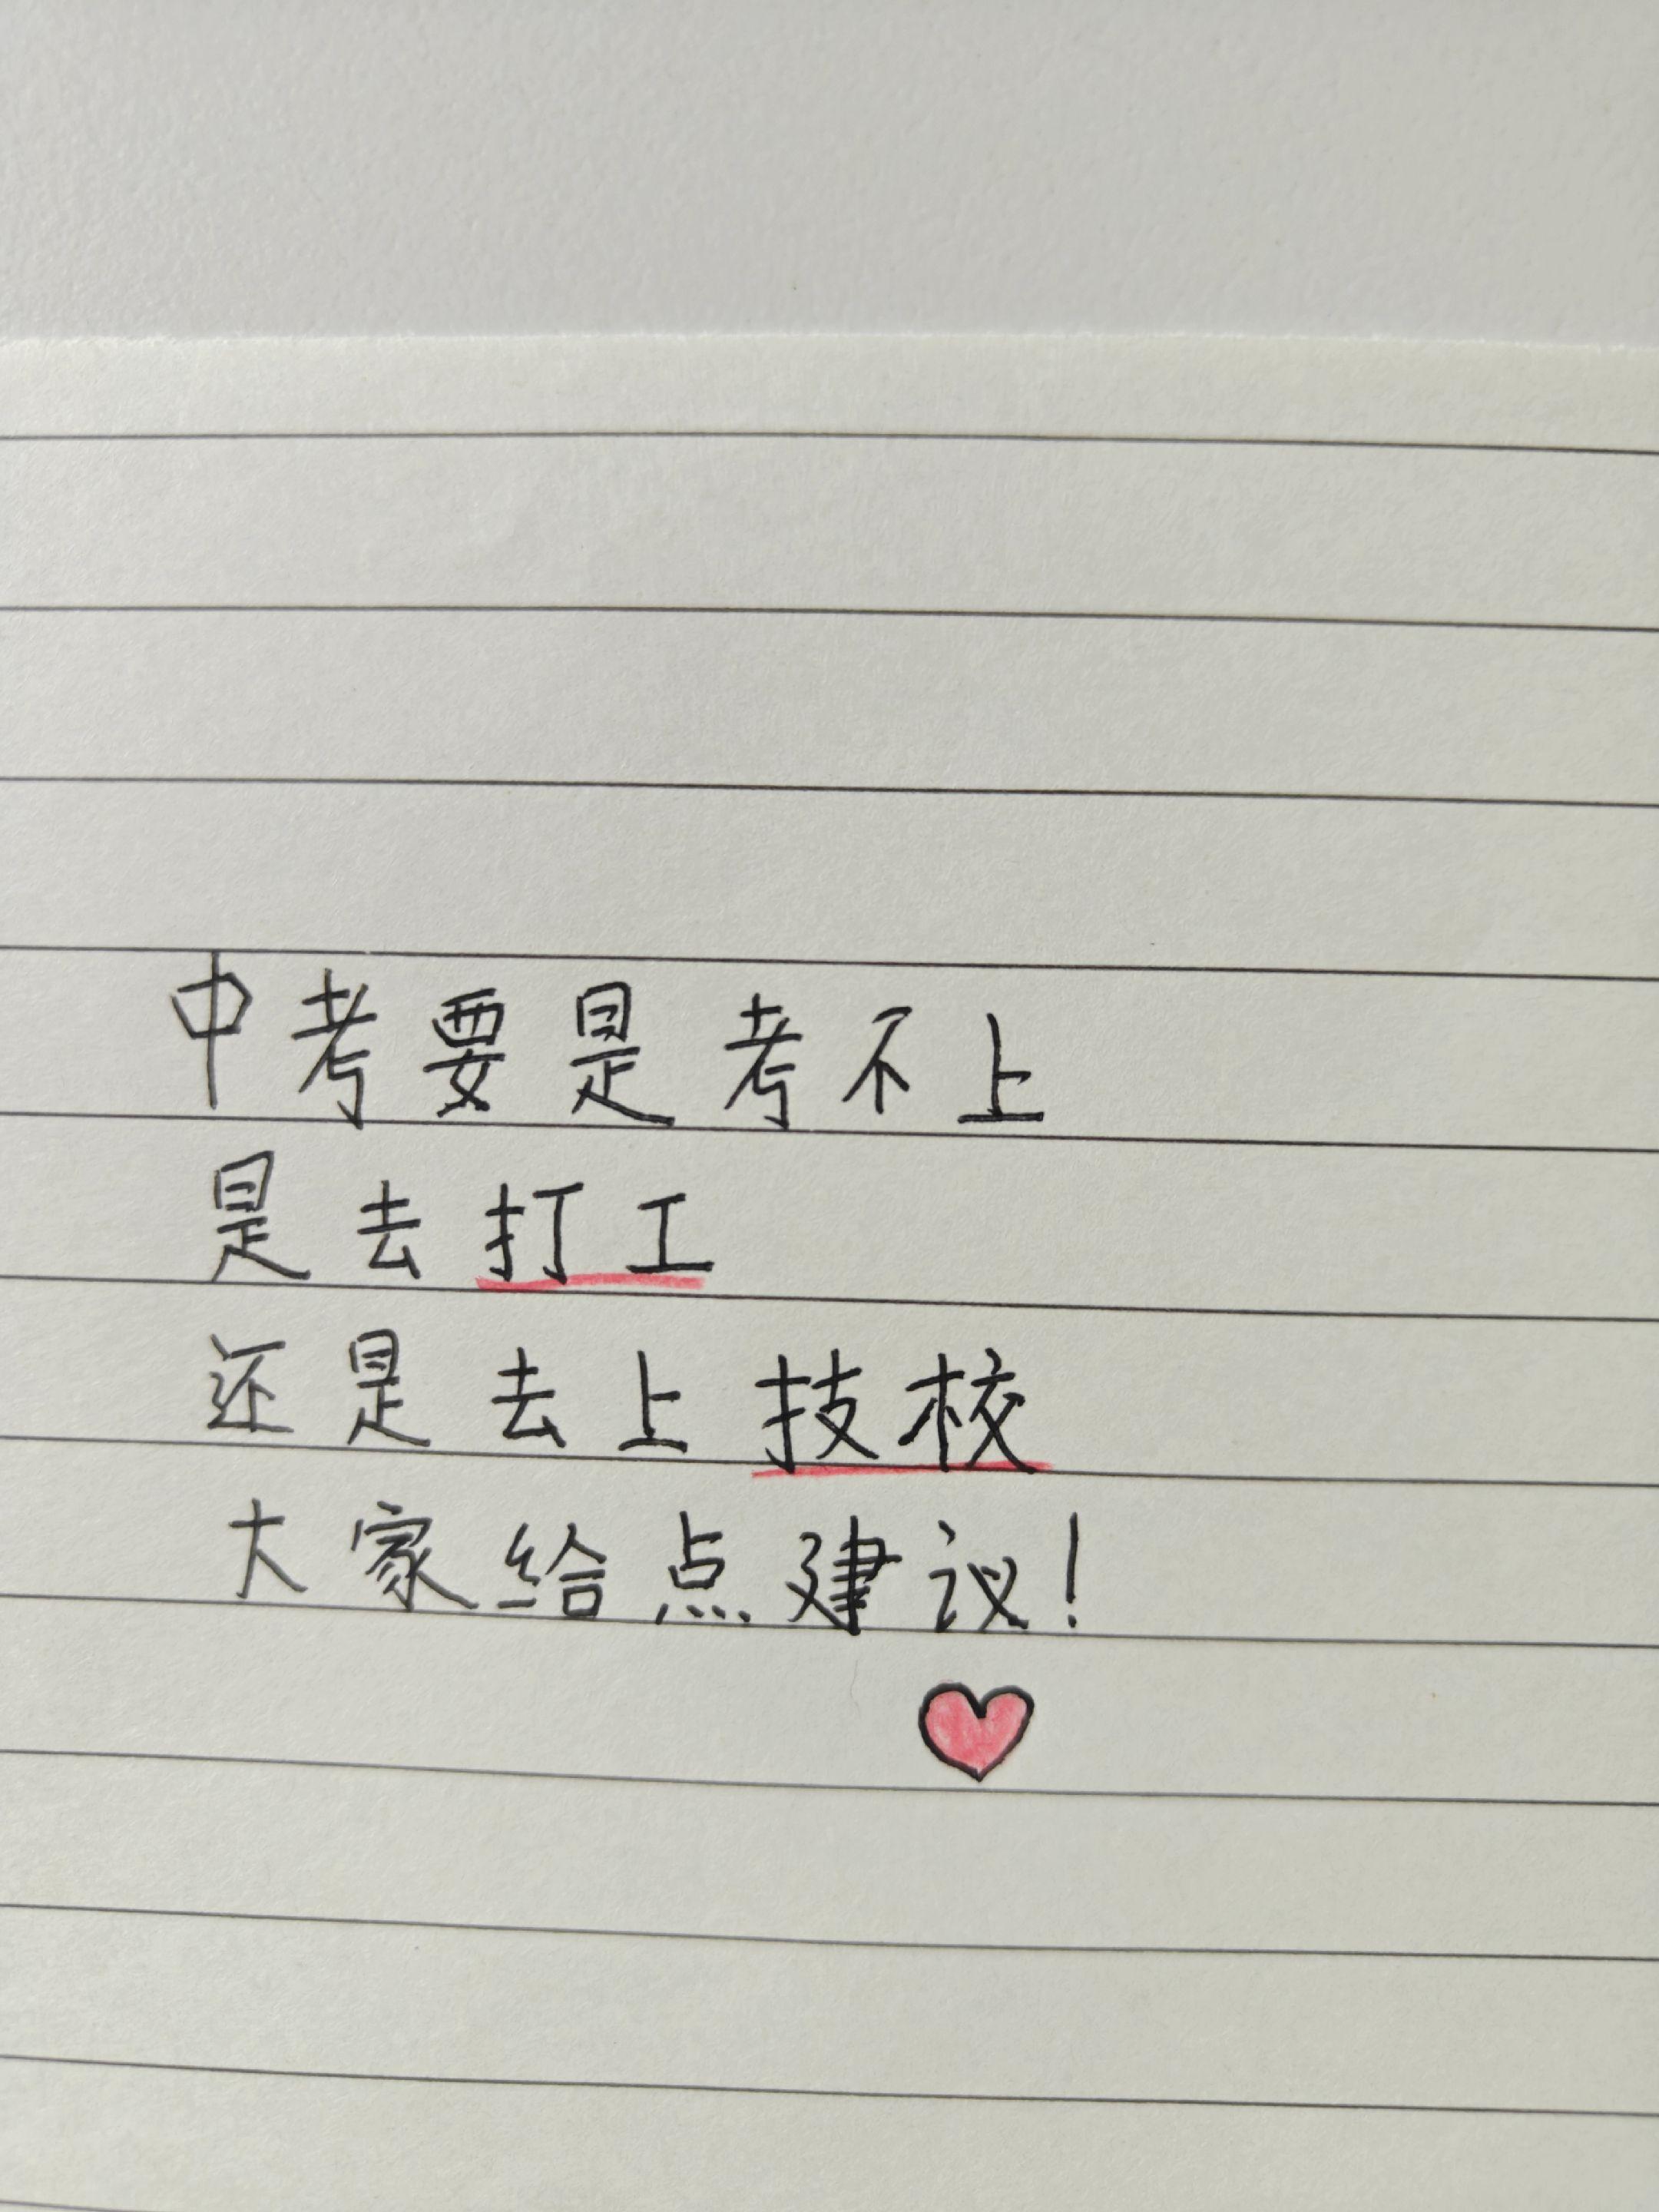 中考要是考不上
是去打工
还是去上技校
大家给点建议！